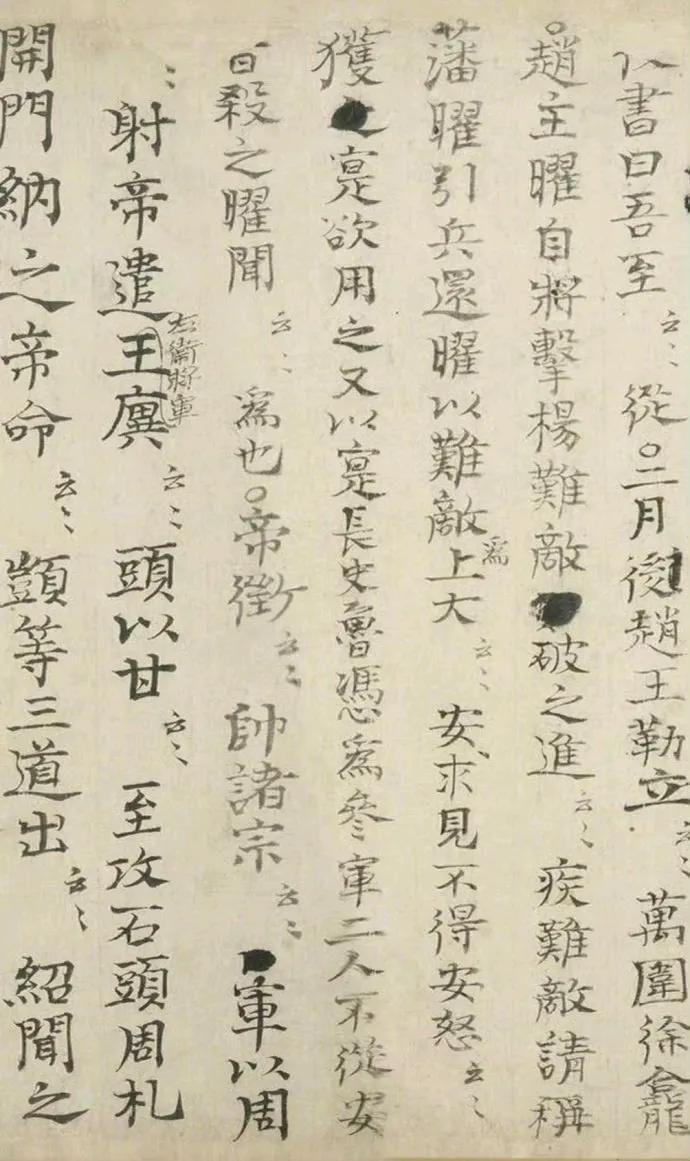 以書曰吾至云〻從〇二月後趙王勒立云〻萬圍徐龕
〇趙主曜自將擊楊難敵破之進云〻疾難敵請稱
藩曜引兵還曜以難敵為上大云〻安求見不得安怒云〻
獲之寔欲用之又以寔長史魯憑爲參軍二人不從安
皆殺之曜聞云〻爲也〇帝徵云〻帥諸宗云〻軍以周
〻射帝遣王廙右衛將軍云〻頭以甘云〻至攻石頭周札
開門納之帝命云〻顗等三道出云〻紹聞之